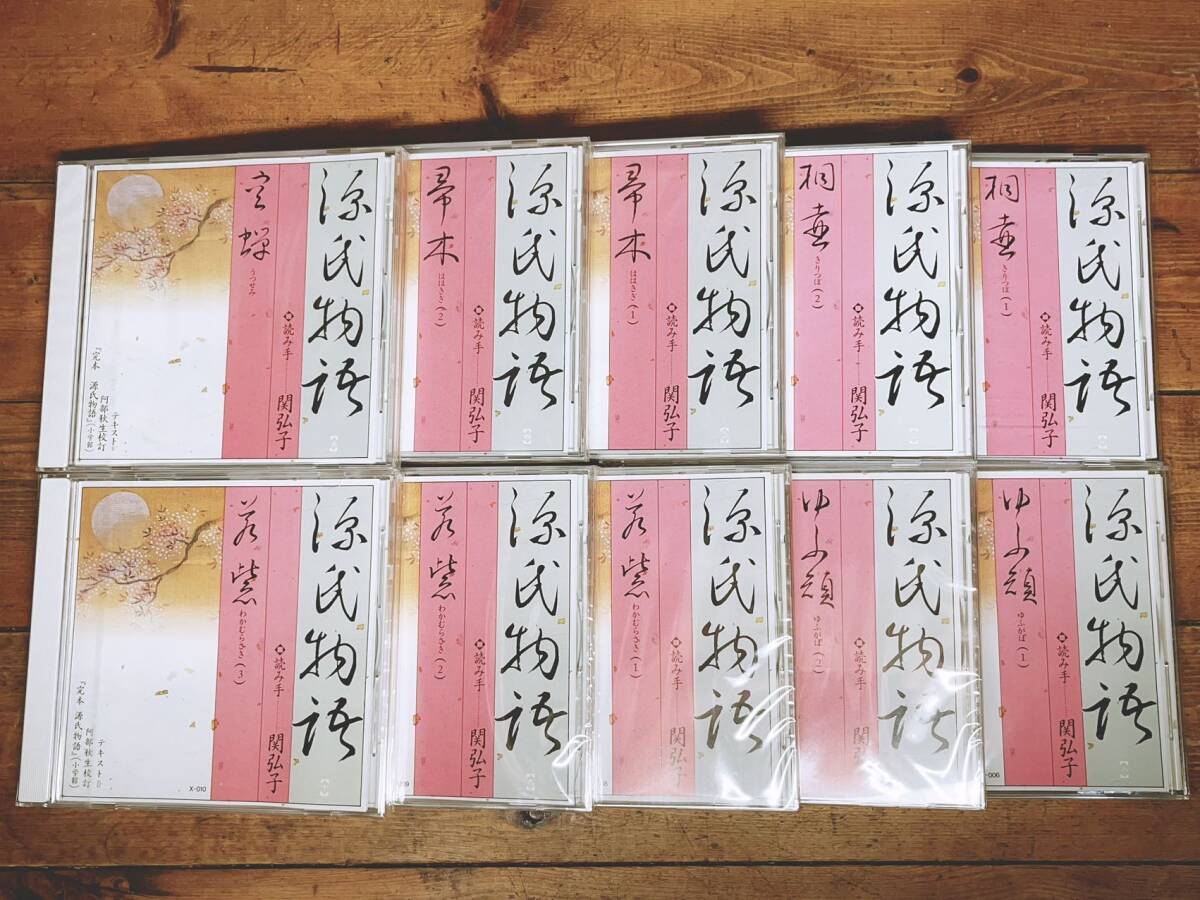 源氏物語
読み手 関弘子
桐壺 きりつぼ(1)
源氏物語
読み手 関弘子
桐壺 きりつぼ(2)
源氏物語
読み手 関弘子
帚木 ははきぎ(1)
源氏物語
読み手 関弘子
帚木 ははきぎ(2)
源氏物語
読み手 関弘子
空蝉 うつせみ
テキスト=
阿部秋生校訂
『完本 源氏物語』(小学館)
源氏物語
読み手 関弘子
ゆふ顔 ゆふがほ(1)
-006
源氏物語
読み手 関弘子
ゆふ顔 ゆふがほ(2)
源氏物語
読み手 関弘子
若紫 わかむらさき(1)
源氏物語
読み手 関弘子
若紫 わかむらさき(2)
源氏物語
読み手 関弘子
若紫 わかむらさき(3)
テキスト=
阿部秋生校訂
『完本 源氏物語』(小学館)
X-010